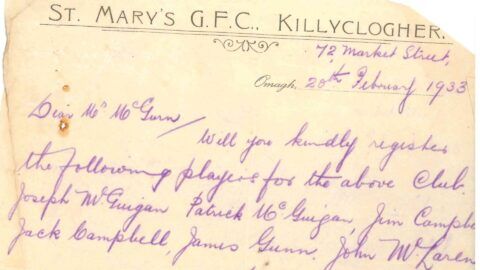 ST. MARY'S G.F.C., KILLYCLOGHER.
72, Market Street,
Omagh, 20th February 1933
Dear Mr McGurn/
Will you kindly register
the following players for the above Club.
Joseph McGuigan Patrick McGuigan, Jim Campbe
Jack Campbell, James Gunn. John McLaren